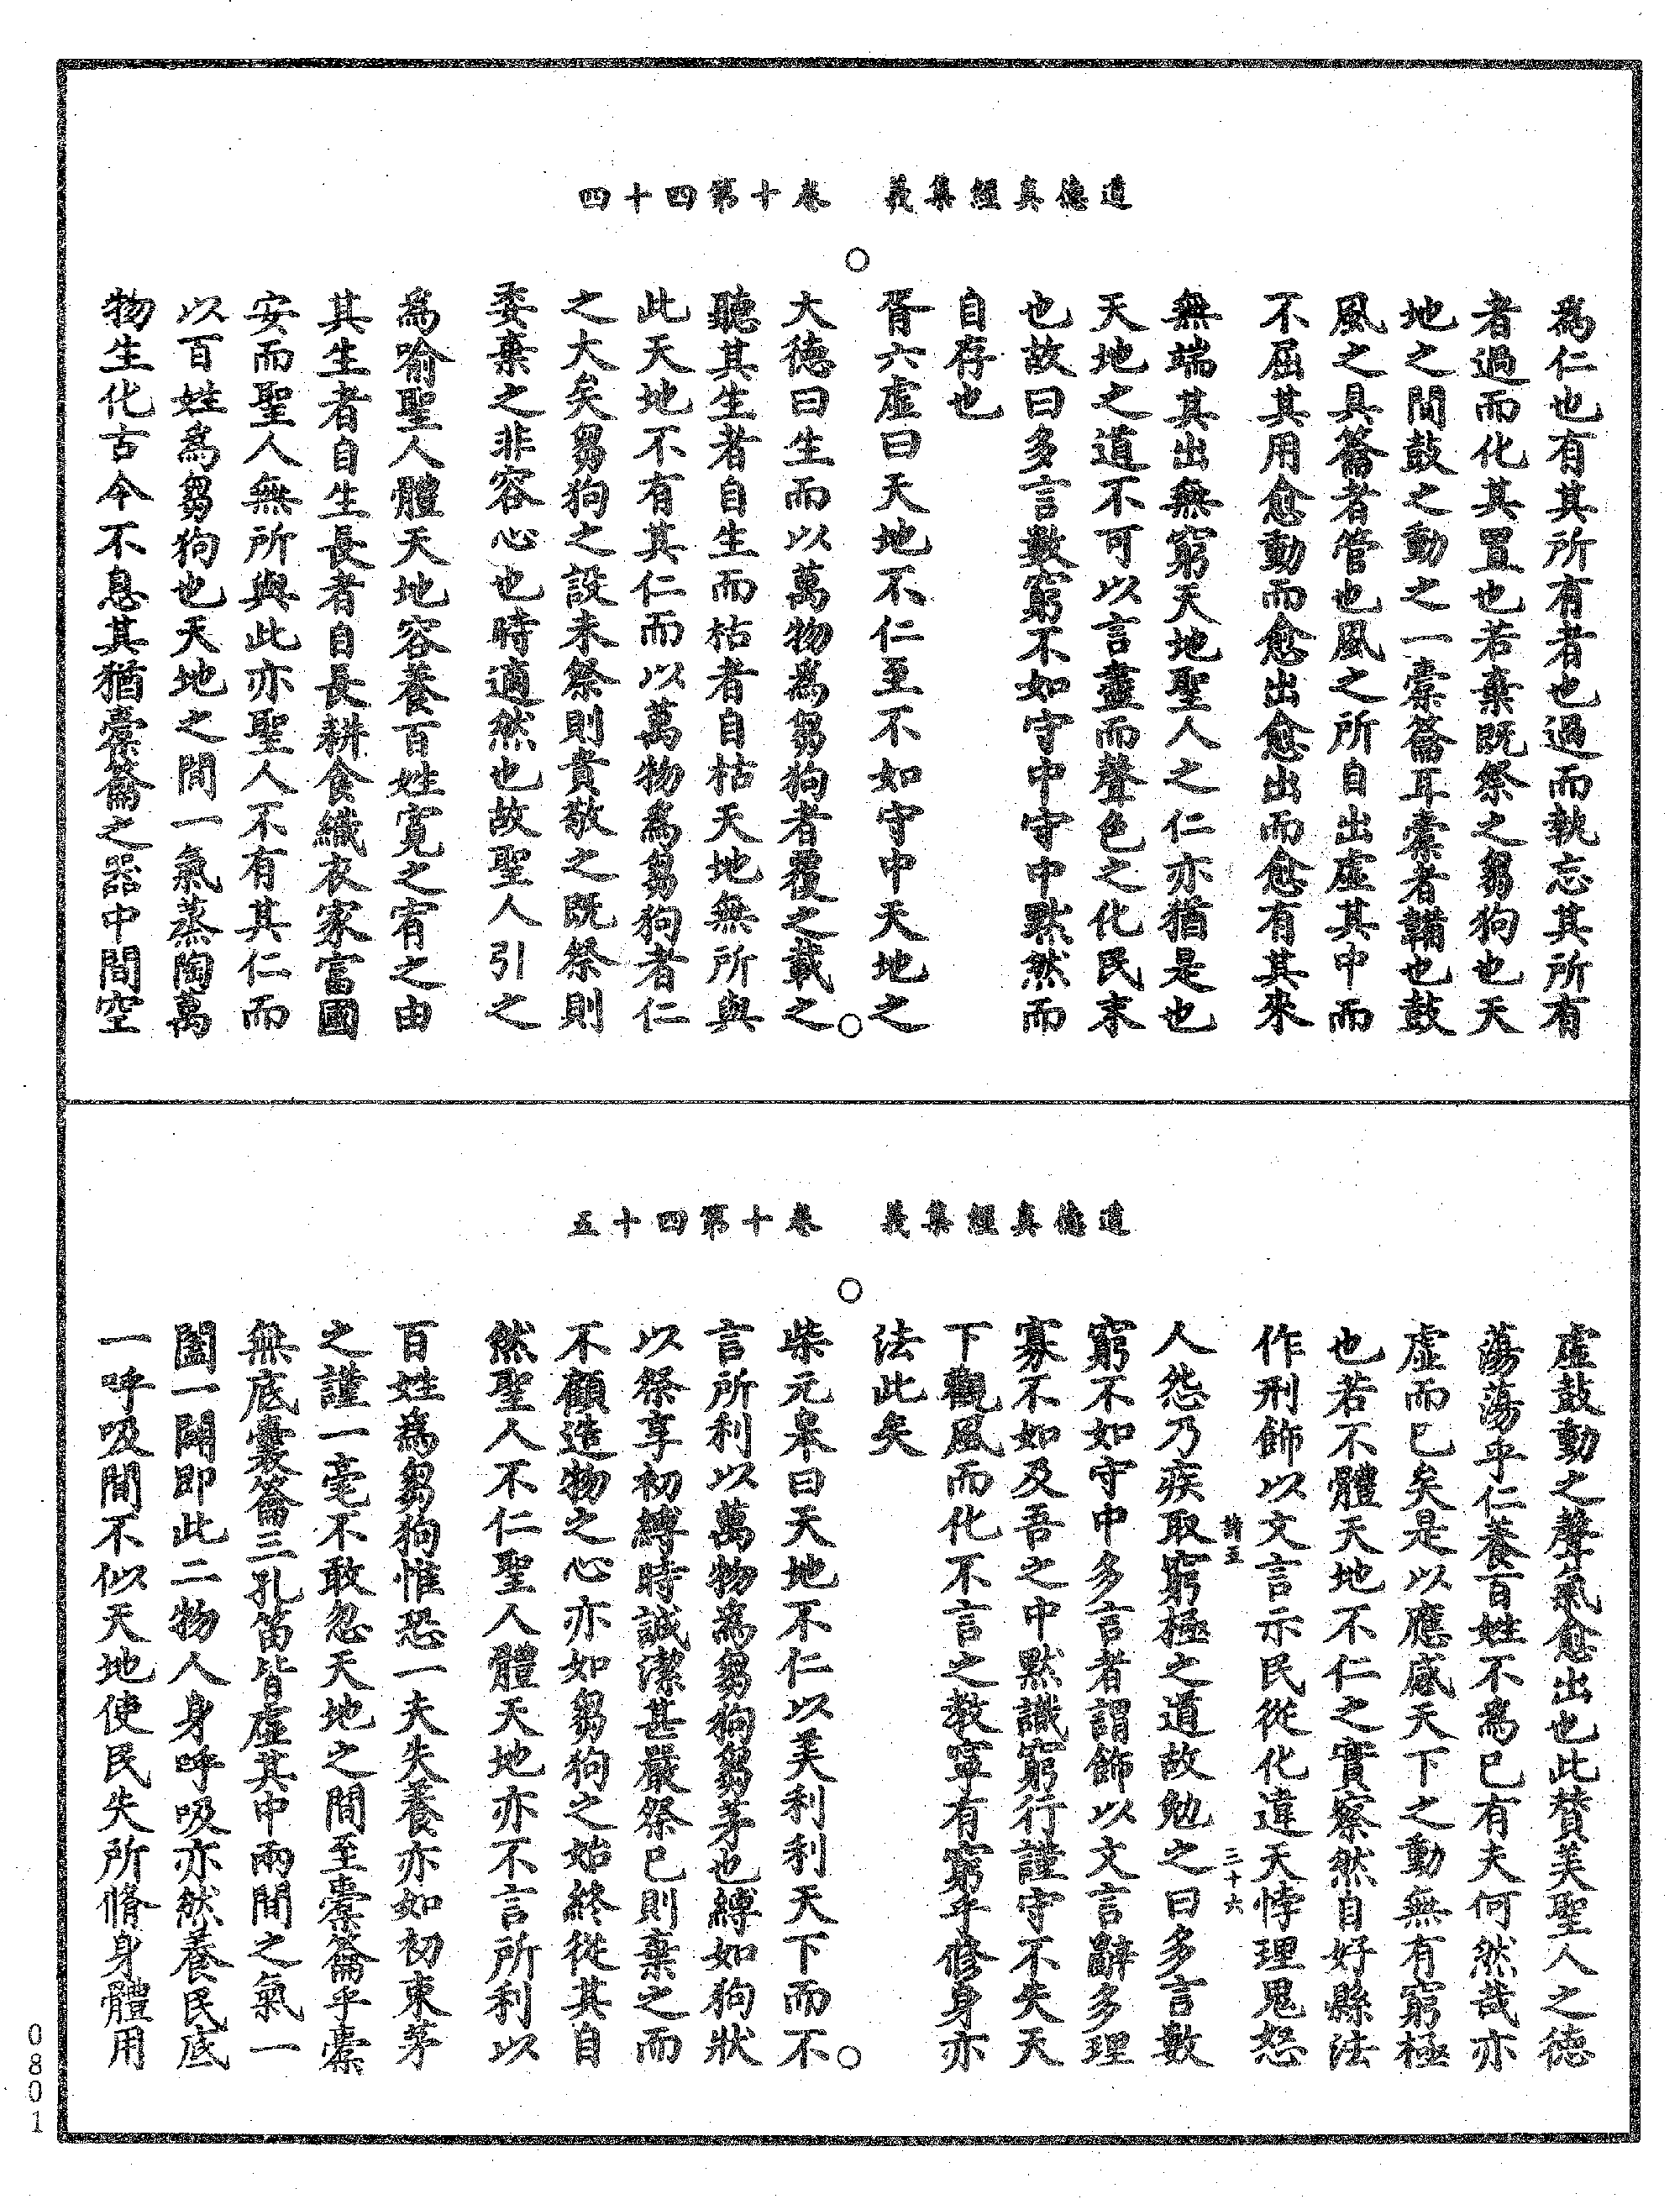 道德真經集義　卷十第四十四
為仁也有其所有者也過而執忘其所有
者過而化其置也若棄既祭之芻狗也天
地之間鼓之動之一橐籥耳橐者韛也鼓
風之具籥者管也風之所自出虛其中而
不屈其用愈動而愈出愈出而愈有其來
無端其出無窮天地聖人之仁亦猶是也
天地之道不可以言盡而聲色之化民末
也故曰多言數窮不如守中守中默然而
自存也
胥六虛曰天地不仁至不如守中天地之
大德曰生而以萬物為芻狗者覆之載之
聽其生者自生而枯者自枯天地無所與
此天地不有其仁而以萬物為芻狗者仁
之大矣芻狗之設未祭則貴敬之既祭則
委棄之非容心也時適然也故聖人引之
為喻聖人體天地容養百姓寬之宥之由
其生者自生長者自長耕食織衣家富國
安而聖人無所與此亦聖人不有其仁而
以百姓為芻狗也天地之間一氣蒸陶萬
物生化古今不息其猶橐籥之器中間空
道德真經集義　卷十第四十五
虛鼓動之聲氣愈出也此贊美聖人之德
蕩蕩乎仁養百姓不為己有夫何然哉亦
虛而已矣是以應感天下之動無有窮極
也若不體天地不仁之實察然自好縣法
作刑飾以文言示民從化違天悖理鬼怒
三十六
人怨乃疾取窮極之道故勉之曰多言數
窮不如守中多言者謂飾以文言辭多理
寡不如及吾之中默識窮行謹守不失天
下觀風而化不言之教寧有窮乎修身亦
法此矣
柴元皋曰天地不仁以美利利天下而不
言所利以萬物為芻狗芻茅也縛如狗狀
以祭享初縛時誠潔甚嚴祭已則棄之而
不顧造物之心亦如芻狗之始終從其自
然聖人不仁聖人體天地亦不言所利以
百姓為芻狗惟恐一夫失養亦如初束茅
之謹一毫不敢忽天地之間至橐籥乎橐
無底囊籥三孔笛皆虛其中兩間之氣一
闔一闢即此二物人身呼吸亦然養民底
一呼吸間不似天地使民失所脩身體用
0801